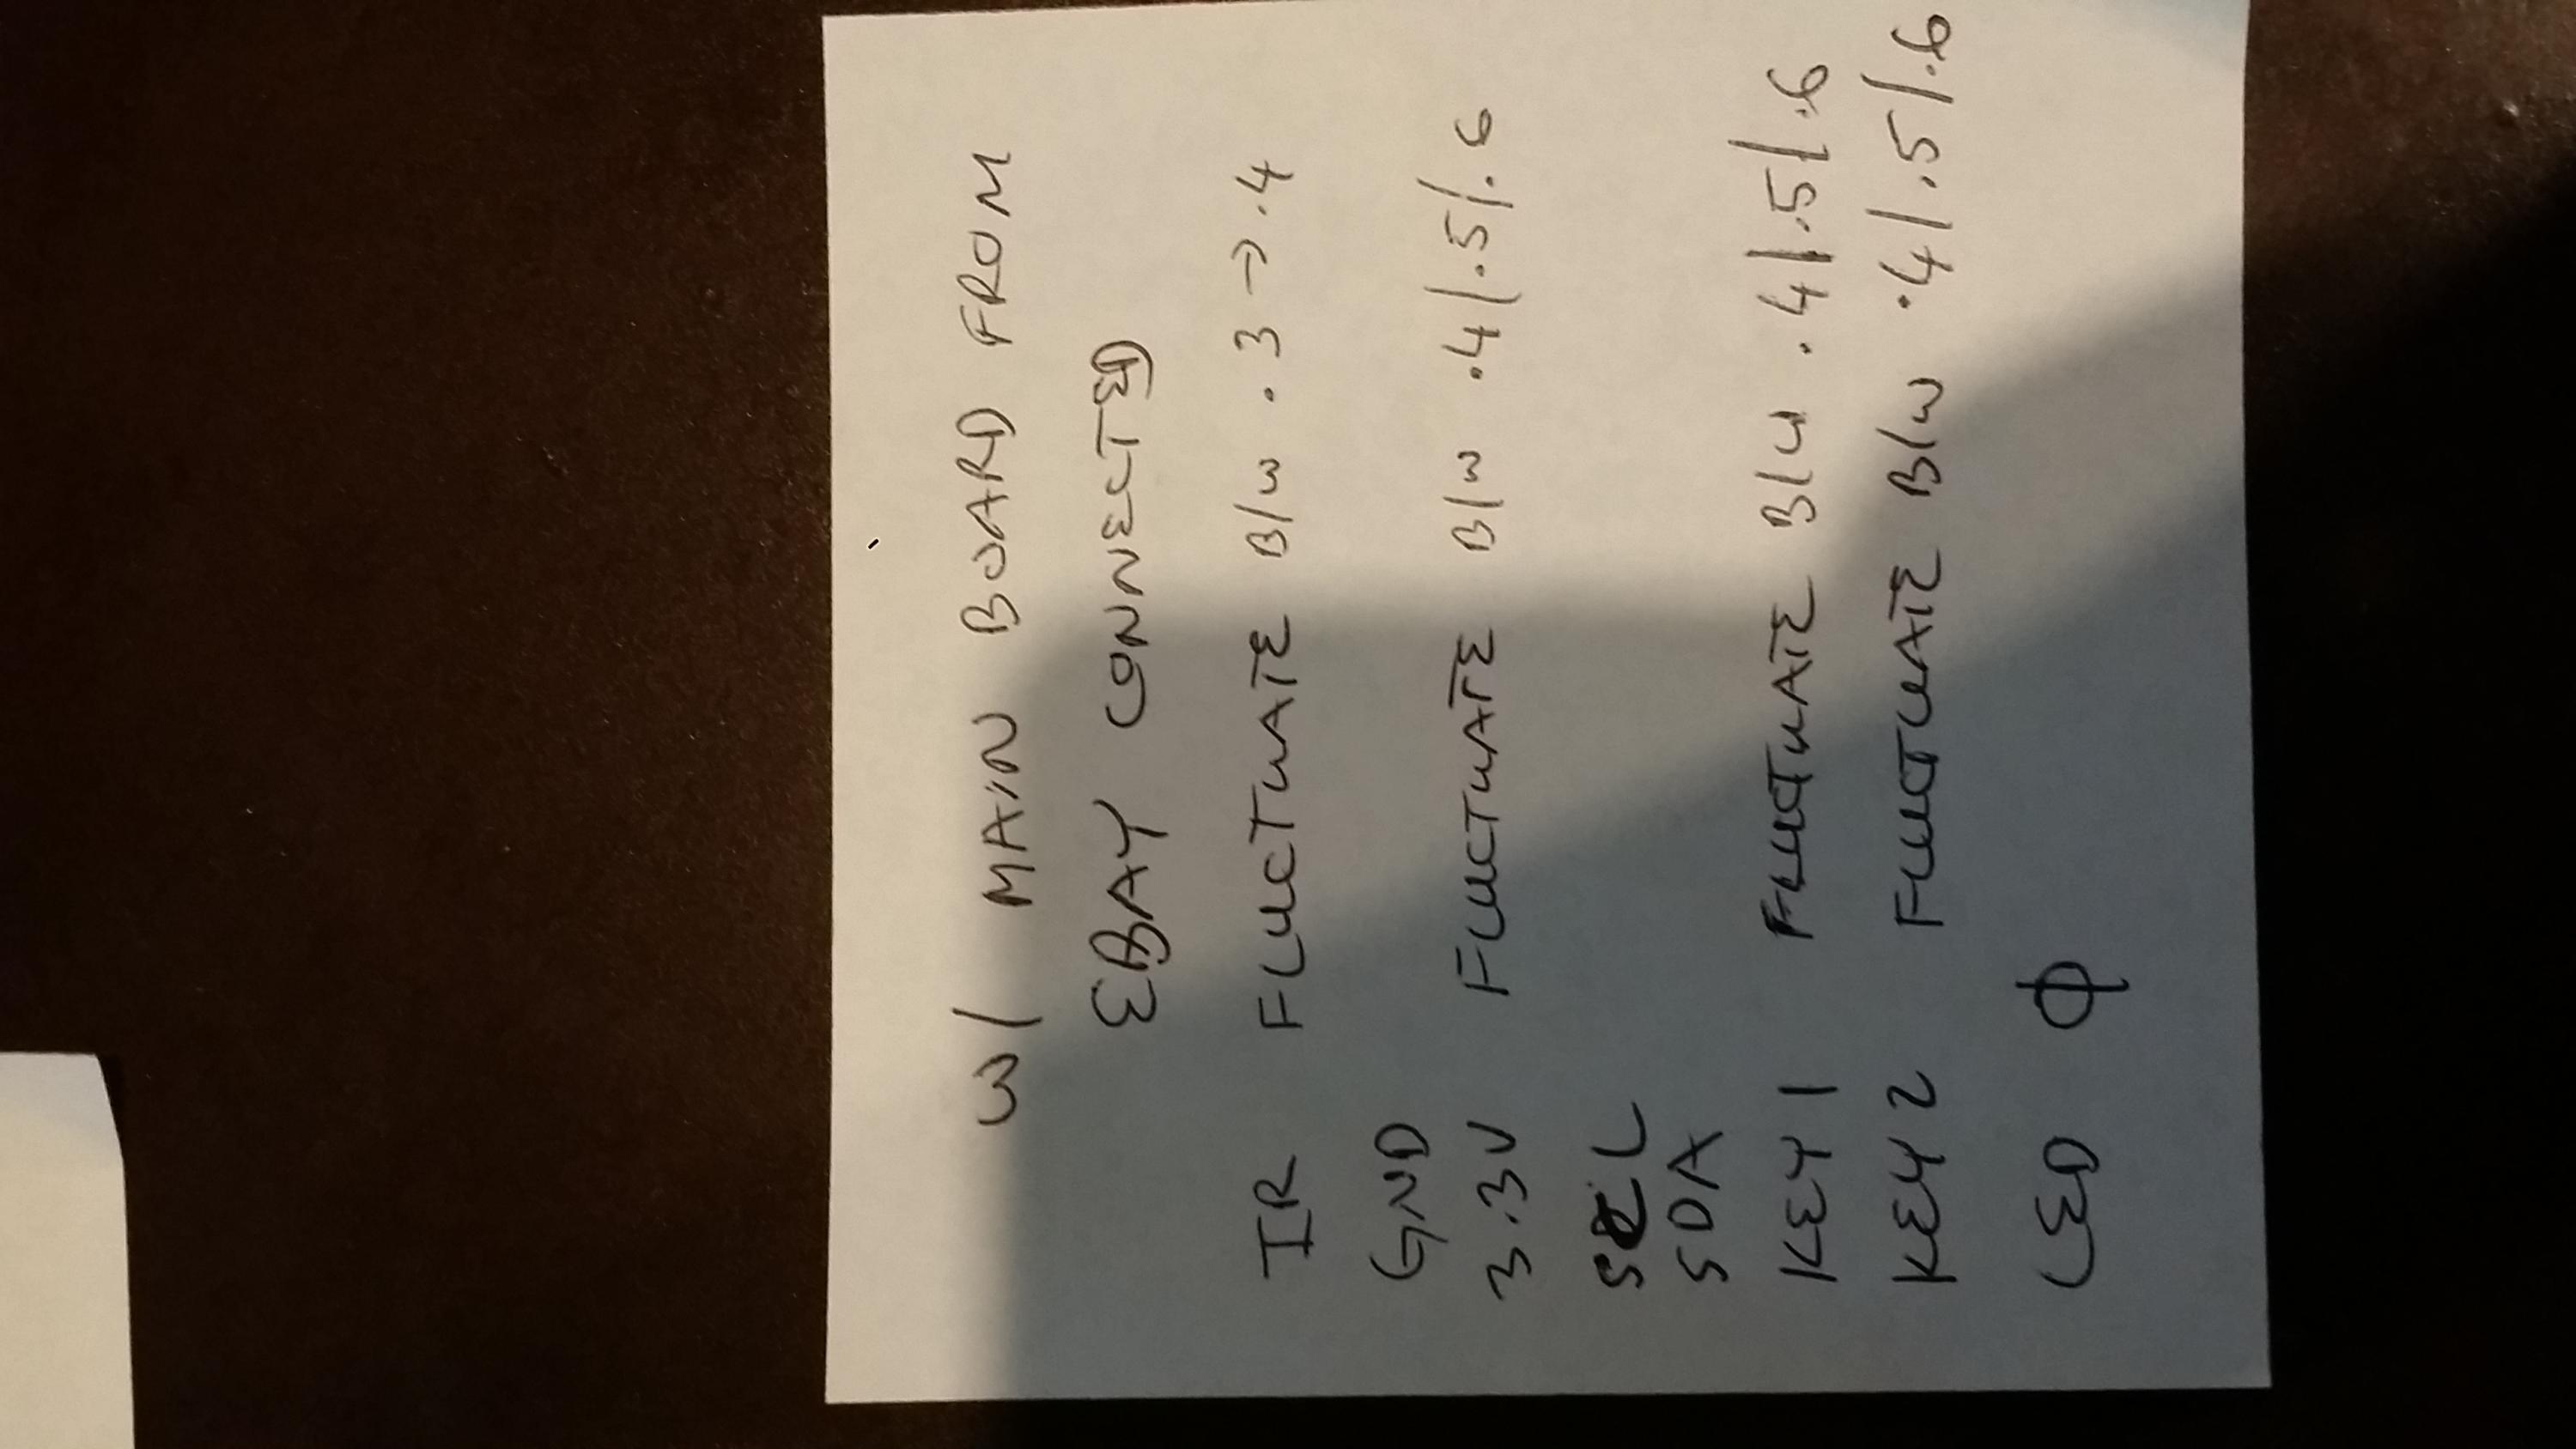 W/ MAIN BOARD FROM
EBAY CONNECTED
IR FLUCTUATE B/W .3 → .4
GND
3.3V FLUCTUATE B/W .4/.5/.6
SCL
SDA
KEY 1 FLUCTUATE B/W .4/.5/.6
KEY 2 FLUCTUATE B/W .4/.5/.6
LED Φ